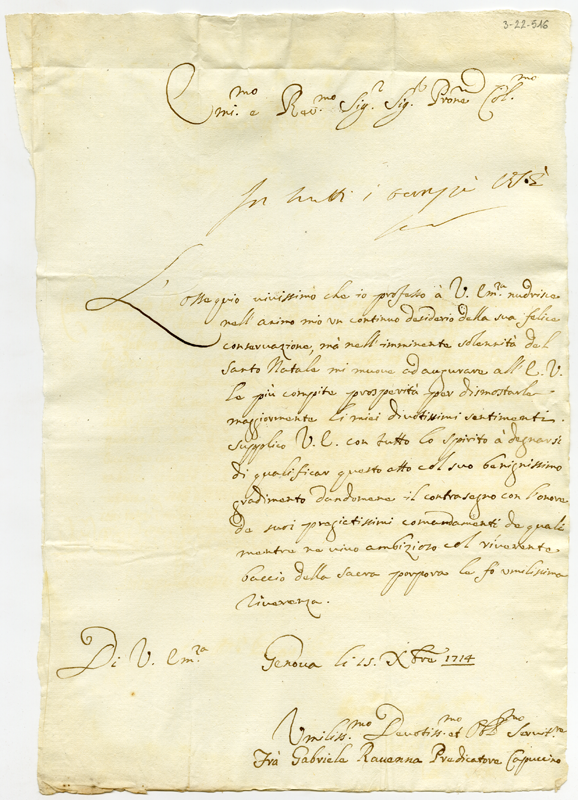 3-22-516
Emi.mo e Rev.mo Sig.r Sig.r Prone Col.mo
In tutti i
L'ossequio vivissimo che io professo à V. Em.za nudrisce
nell'animo mio un continuo desiderio della sua felice
conservazione, mà nell'imminente solennità del
Santo Natale mi muove ad augurare all'E. V.
le più compite prosperità per dimostarle
maggiormente li miei divotissimi sentimenti.
supplico V. E. con tutto lo spirito à degnarsi
di qualificar questo atto col suo benignissimo
gradimento dandomene il contrasegno con l'onore
de suoi pregietissimi comandamenti de quali
mentre ne vivo ambizioso col riverente
baccio della Sacra porpora le fò umilissima
riverenza.
Di V. Em.za Genova li 15 Xbre 1714
Umiliss.mo Devotiss.mo et Servit.re
Frà Gabriele Ravenna Predicatore Capuccino